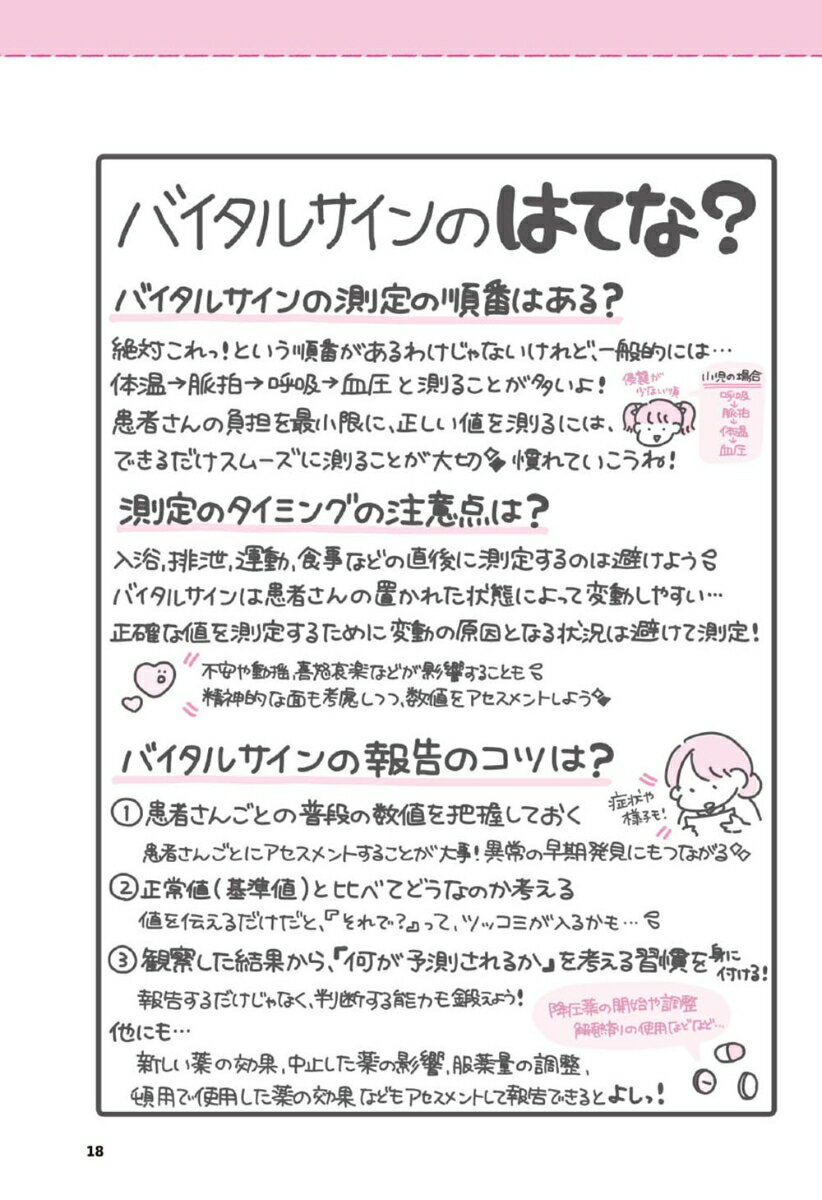 バイタルサインのはてな?
バイタルサインの測定の順番はある?
絶対これっ!という順番があるわけじゃないけれど、一般的には…
体温→脈拍→呼吸→血圧と測ることが多いよ!
侵襲が
少ない順
小児の場合
呼吸
↓
脈拍
↓
体温
↓
血圧
患者さんの負担を最小限に、正しい値を測るには、
できるだけスムーズに測ることが大切 慣れていこうね!
測定のタイミングの注意点は?
入浴,排泄,運動,食事などの直後に測定するのは避けよう
バイタルサインは患者さんの置かれた状態によって変動しやすい…
正確な値を測定するために変動の原因となる状況は避けて測定!
不安や動揺,喜怒哀楽などが影響することも
精神的な面も考慮しつつ、数値をアセスメントしよう
バイタルサインの報告のコツは?
症状や
様子も!
①患者さんごとの普段の数値を把握しておく
患者さんごとにアセスメントすることが大事!異常の早期発見にもつながる
②正常値(基準値)と比べてどうなのか考える
値を伝えるだけだと、『それで?』って、ツッコミが入るかも…
③観察した結果から、『何が予測されるか』を考える習慣を身に付ける!
報告するだけじゃなく、判断する能力も鍛えよう!
降圧薬の開始や調整
解熱剤の使用などなど…
他にも…
新しい薬の効果,中止した薬の影響,服薬量の調整,
頓用で使用した薬の効果などもアセスメントして報告できるとよしっ!
18